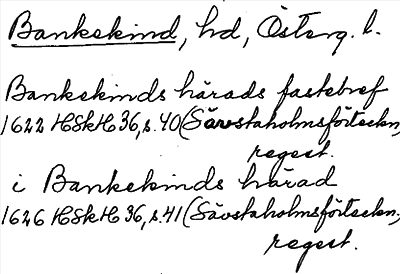 Bankekind, hd, Österg. l.
Bankekinds härads fastebref
1622 HSkH 36, s. 40 (Sävstaholmsförteckn,
regest.
i Bankekinds härad
1626 HSkH 36, s. 41 (Sävstaholmsförteckn,
regest.